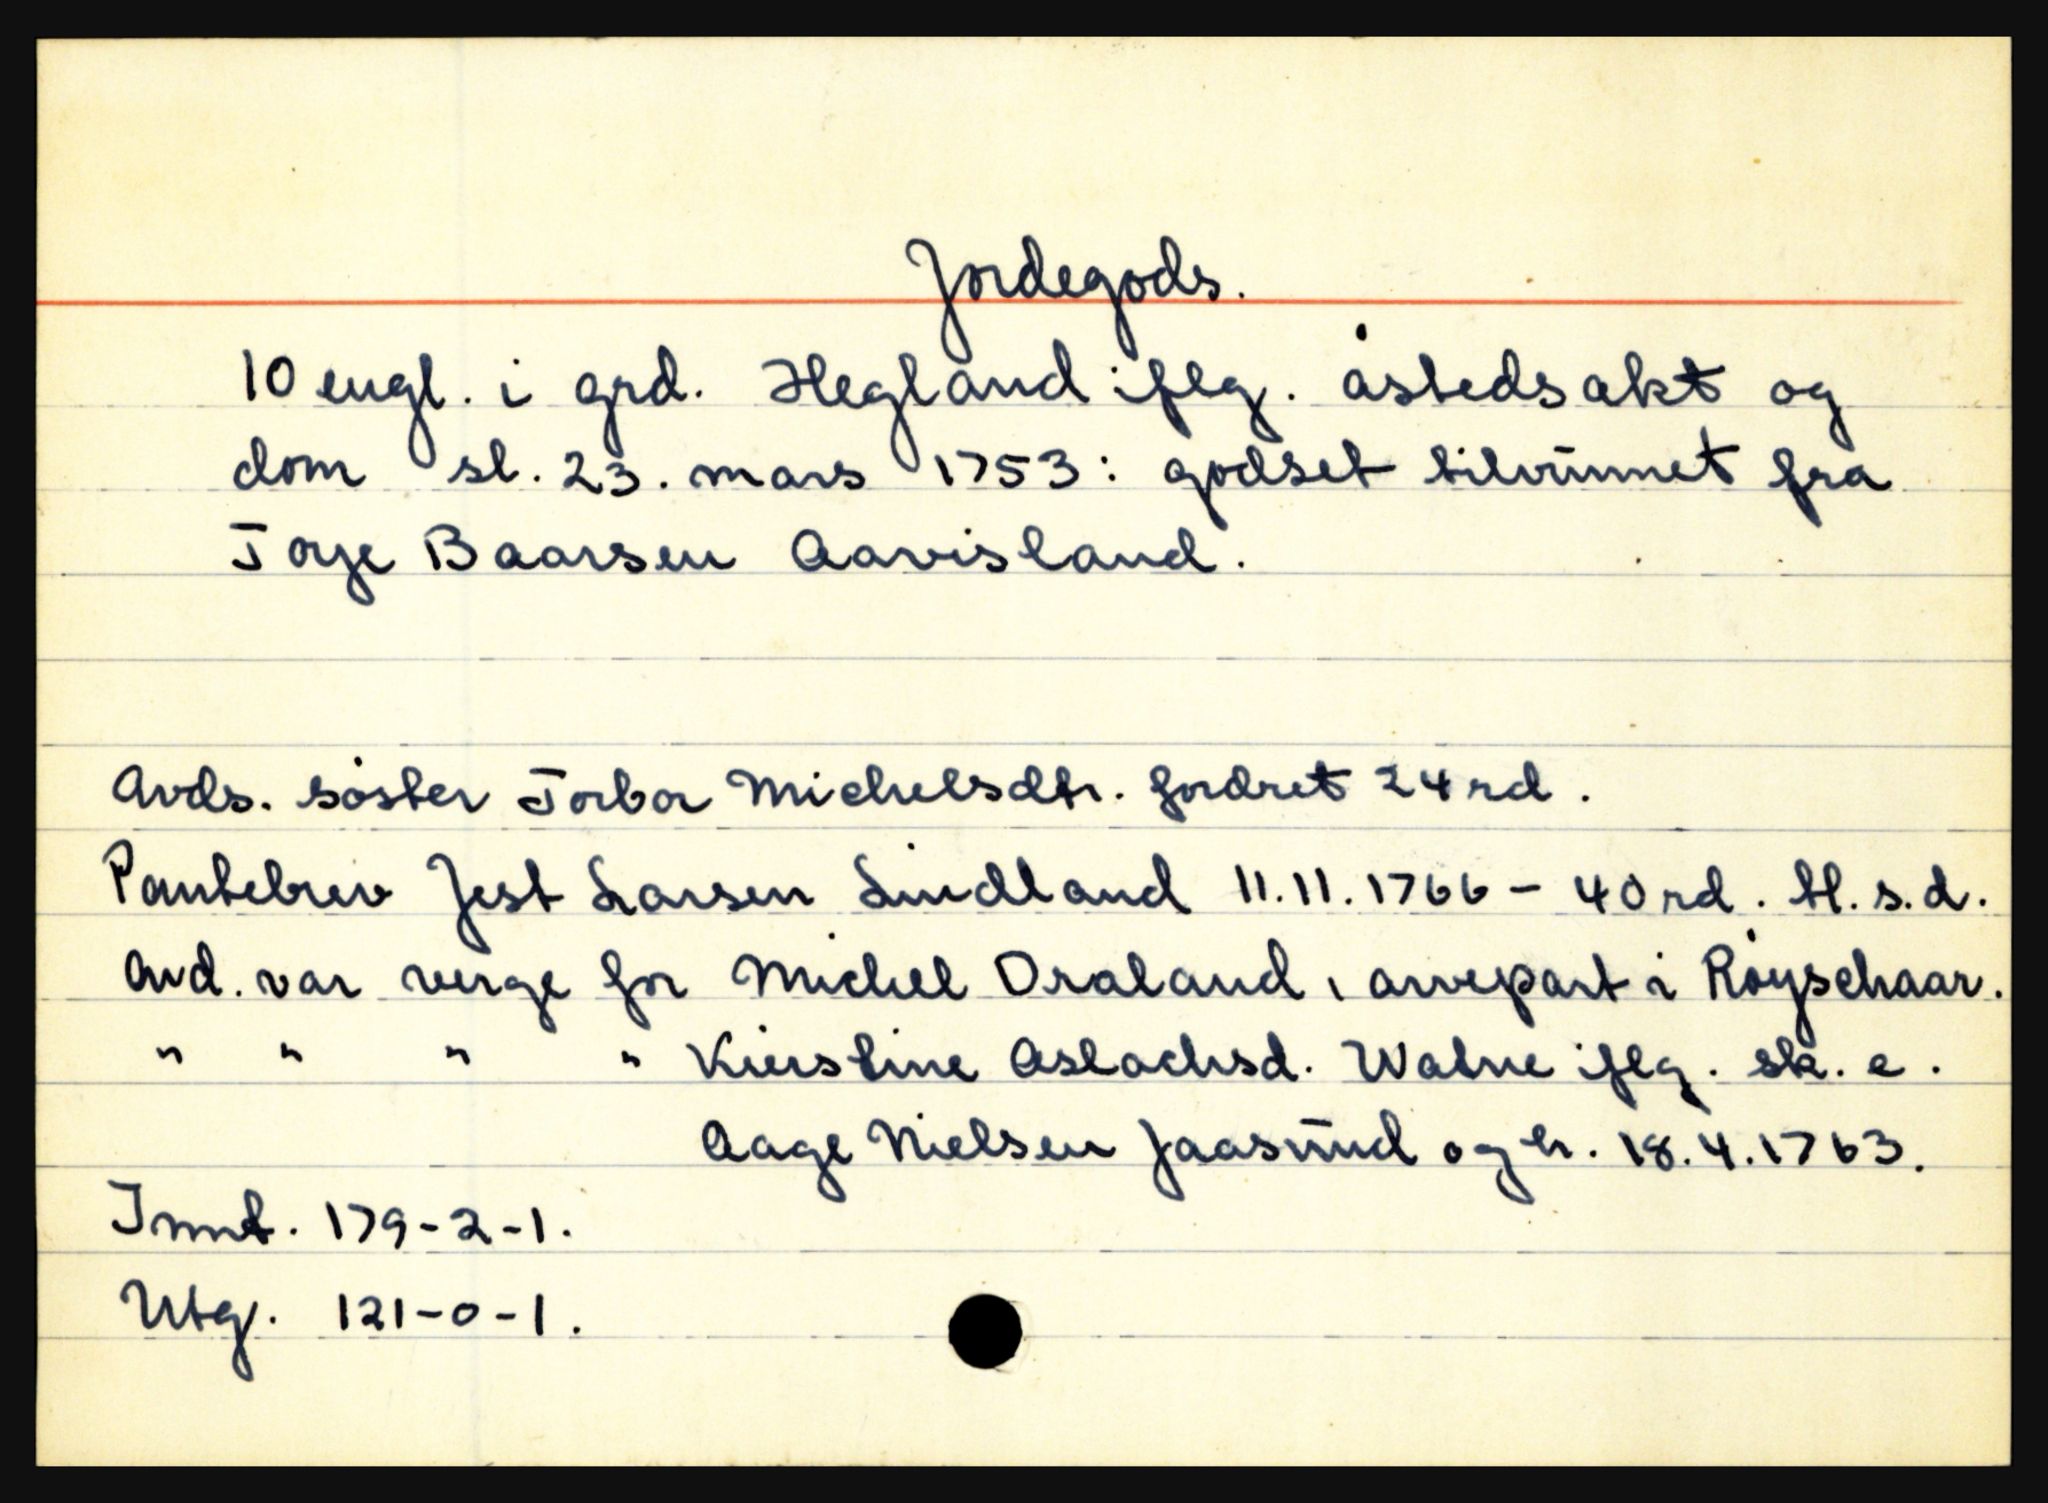 Jordegods.
10 engl. i grd. Hegland iflg. åstedsakt og
dom sl. 23. mars 1753: godset tilvunnet fra
Torje Baarsen Aavisland.
Avds. søster Torbor Michelsdtr. fordret 24 rd.
Pantebrev Jest Larsen Lindland 11.11.1766 - 40 rd. tl. s. d.
Avd. var verge for Michel Draland, arvepart i Røyschaar.
" " " " Kierstine Aslachsd. Watne iflg. sk. e.
Aage Nielsen Jaasund og h. 18.4.1763.
Innt. 179-2-1.
Utg. 121-0-1.